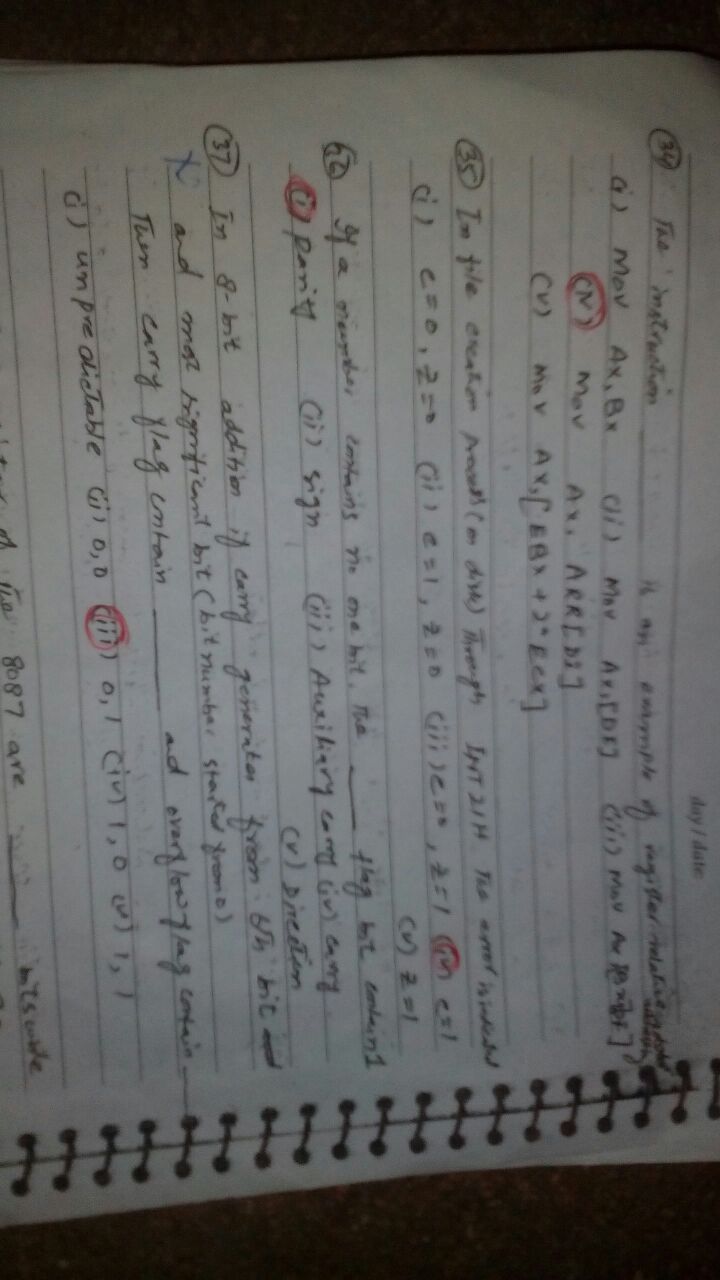 day / date
(34) The instruction ____ is an example of register relative
(i) Mov Ax, Bx (ii) Mov Ax, [DI] (iii) Mov Ax
(iv) Mov Ax, ARR[DI]
(v) Mov Ax, [EBx + 2*Ecx]
(35) In file creation (on disk) Through INT 21H. The error is
(i) c=0, z=0 (ii) c=1, z=0 (iii) c=0, z=1 (iv) c=1
(v) z=1
If a number contains no one bit. The ____ flag bit contain 1
(i) parity (ii) sign (iii) Auxiliary carry (iv) carry
(v) Direction
(37) In 8-bit addition if carry generates from 6th bit
X and most significant bit (bit number started from 0)
Then carry flag contain ____ ad overflow flag contain ____
(i) unpredictable (ii) 0,0 (iii) 0,1 (iv) 1,0 (v) 1,1
of the 8087 are ____ bits wide